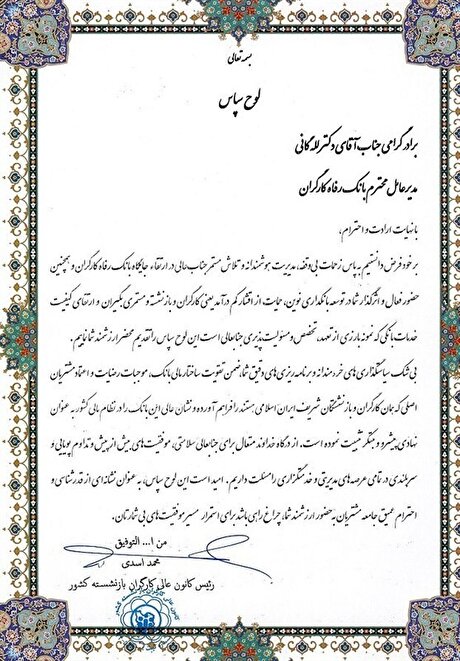 بسمه تعالی
لوح سپاس
برادر گرامی جناب آقای دکتر لله گانی
مدیرعامل محترم بانک رفاه کارگران
بانهایت ارادت و احترام،
بر خود فرض دانستیم به پاس زحمات بی وقفه، مدیریت هوشمندانه و تلاش مستمر جنابعالی در ارتقاء جایگاه بانک رفاه کارگران و همچنین
حضور فعال و اثرگذار شما در توسعه بانکداری نوین، حمایت از اقشار کم درآمد یعنی کارگران و بازنشسته و مستمری بگیران و ارتقای کیفیت
خدمات بانکی که نمونه بارزی از تعهد، تخصص و مسئولیت پذیری جنابعالی است این لوح سپاس را تقدیم محضر ارزشمند شما نمایم.
بی شک سیاستگذاری های خردمندانه و برنامه ریزی های دقیق شما، ضمن تقویت ساختار مالی بانک، موجبات رضایت و اعتماد مشتریان
اصلی که همان کارگران و بازنشستگان شریف ایران اسلامی هستند را فراهم آورده و نشان عالی این بانک را در نظام مالی کشور به عنوان
نهادی پیشرو و مبتکر تثبیت نموده است. از درگاه خداوند متعال برای جنابعالی سلامتی، موفقیت های بیش از پیش و تداوم پویایی و
سربلندی در تمامی عرصه های مدیریتی و خدمتگزاری را مسئلت داریم. امید است این لوح سپاس، به عنوان نشانه ای از قدرشناسی و
احترام عمیق جامعه مشتریان به حضور ارزشمند شما، چراغ راهی باشد برای استمرار مسیر موفقیت های بی شمارتان.
من ا... التوفیق
محمد اسدی
رئیس کانون عالی کارگران بازنشسته کشور